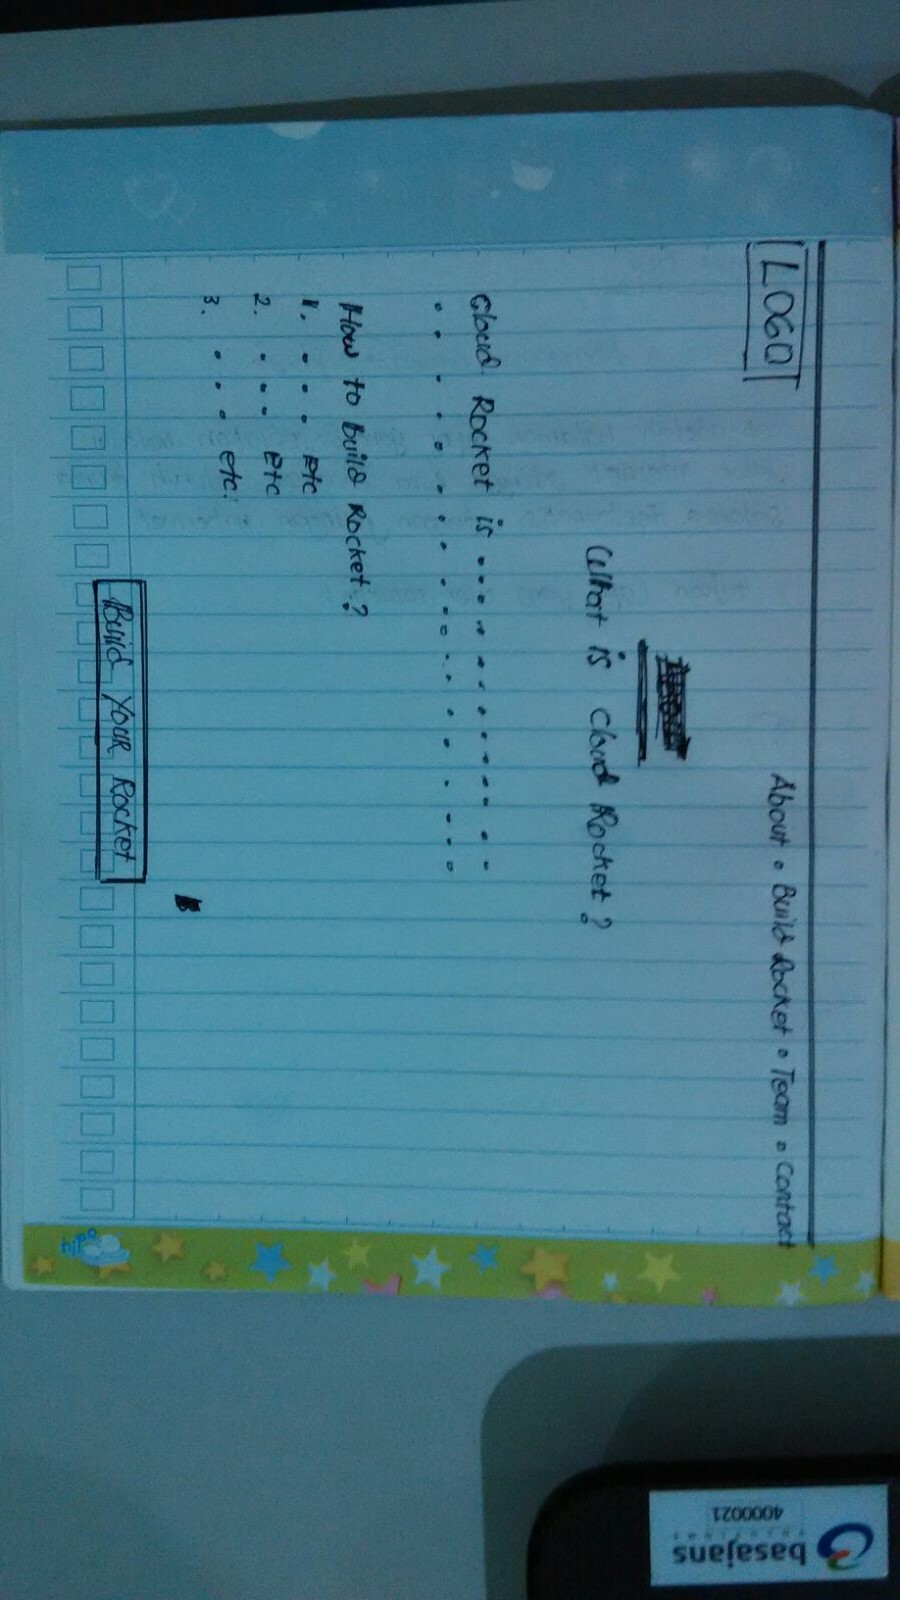 LOGO
About • Build Rocket • Team • Contact
What is Cloud Rocket?
Cloud Rocket is . . . . . . . . . . . .
. . . . . . . . . . . . . . .
How to Build Rocket?
1. . . . etc
2. . . . etc
3. . . . etc.
B
Build Your Rocket
hippo
basajans
4000021